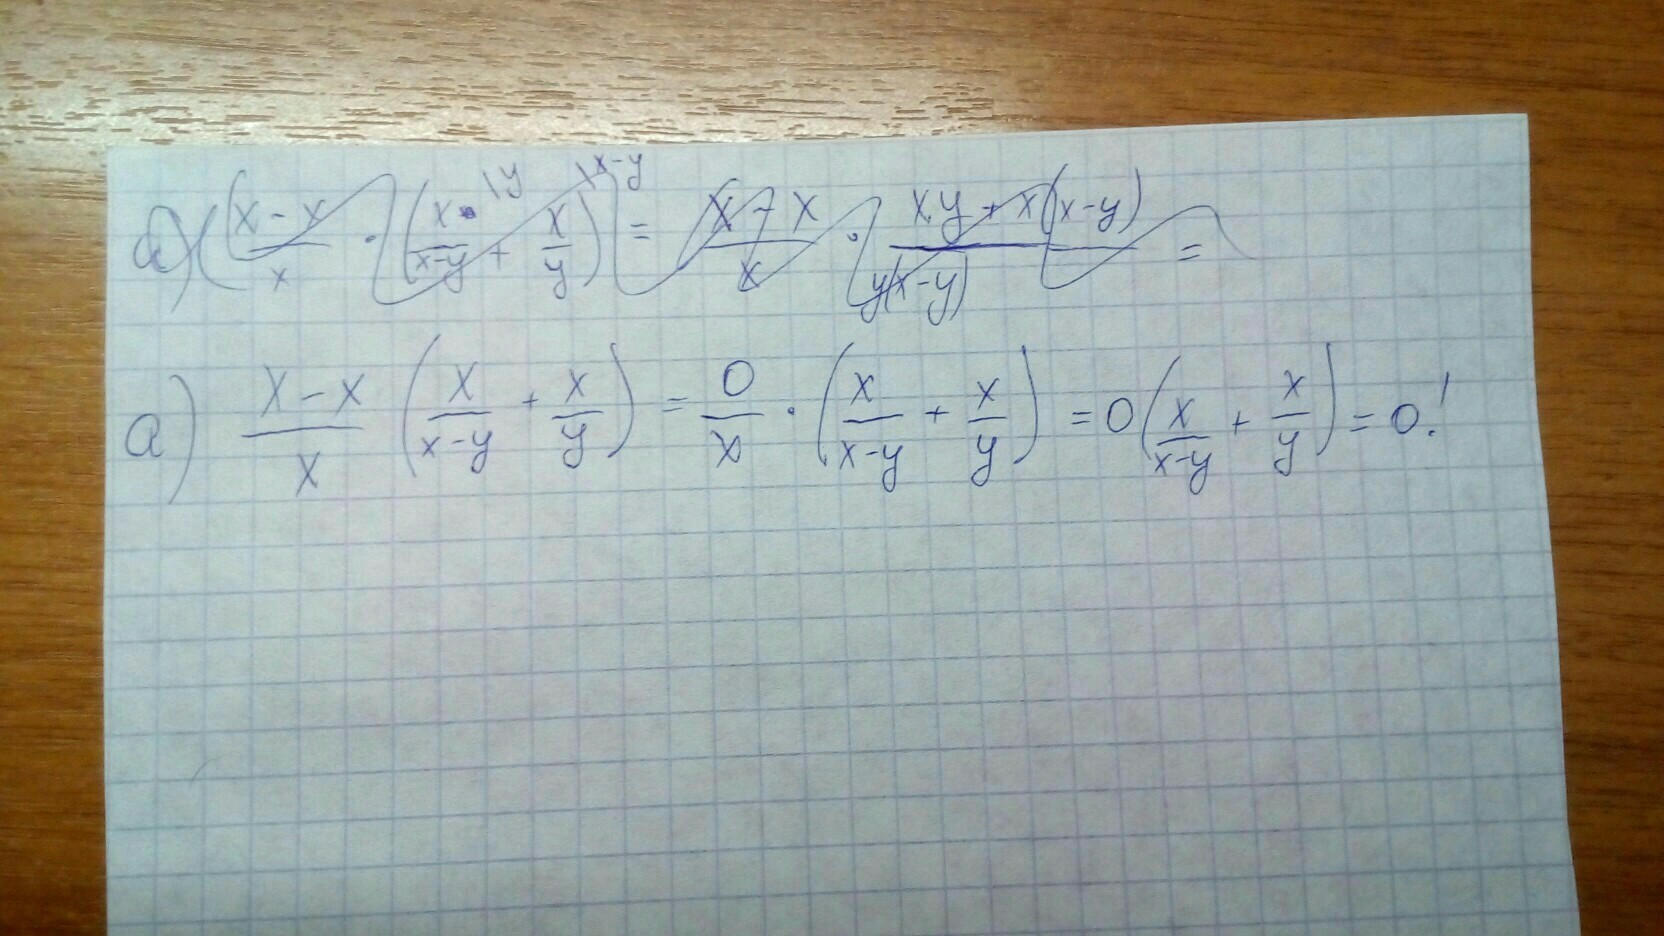 а) ( (x - x)/x · ( x/(x-y) \y + x/y \x-y ) = (x - x)/x · (x·y + x(x-y))/(y(x-y)) =
а) (x - x)/x ( x/(x-y) + x/y ) = 0/x · ( x/(x-y) + x/y ) = 0( x/(x-y) + x/y ) = 0!